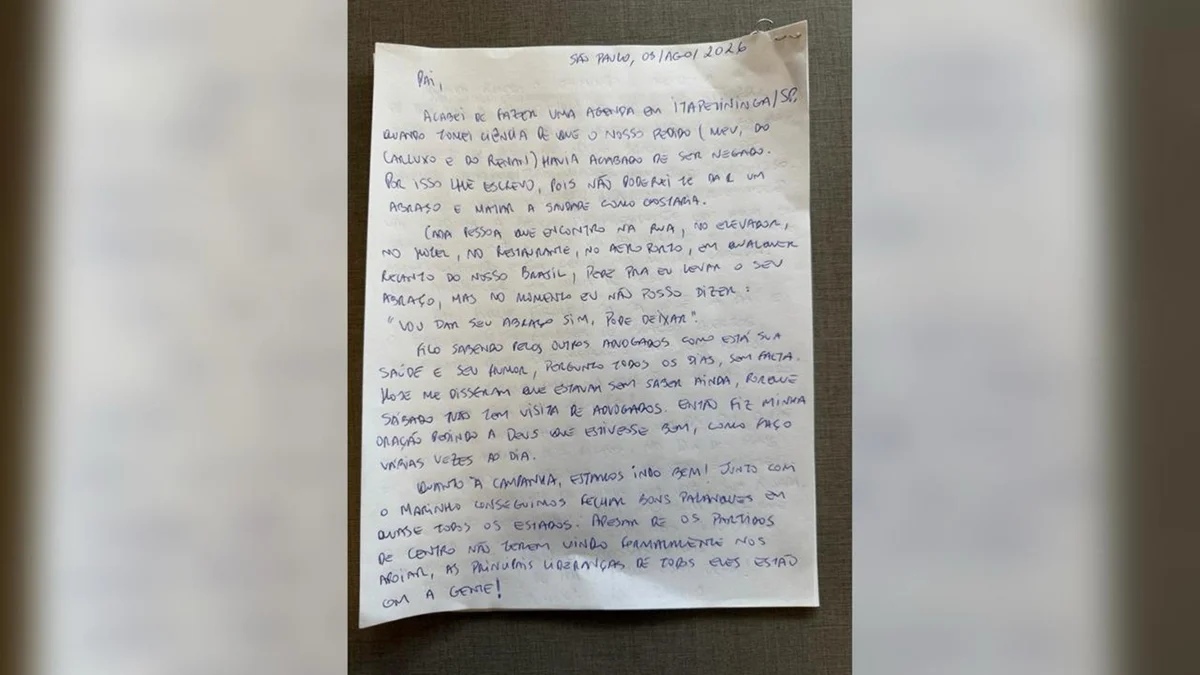 SÃO PAULO, 08/AGO/2026
PAI,
ACABEI DE FAZER UMA AGENDA EM ITAPETININGA/SP,
QUANDO TOMEI CIÊNCIA DE QUE O NOSSO PEDIDO (MEU, DO
CARLUXO E DO RENAN) HAVIA ACABADO DE SER NEGADO.
POR ISSO LHE ESCREVO, POIS NÃO PODEREI TE DAR UM
ABRAÇO E MATAR A SAUDADE COMO GOSTARIA.
CADA PESSOA QUE ENCONTRO NA RUA, NO ELEVADOR,
NO HOTEL, NO RESTAURANTE, NO AEROPORTO, EM QUALQUER
RECANTO DO NOSSO BRASIL, PEDE PRA EU LEVAR O SEU
ABRAÇO, MAS NO MOMENTO EU NÃO POSSO DIZER:
"VOU DAR SEU ABRAÇO SIM, PODE DEIXAR".
FICO SABENDO PELOS OUTROS ADVOGADOS COMO ESTÁ SUA
SAÚDE E SEU HUMOR, PERGUNTO TODOS OS DIAS, SEM FALTA.
HOJE ME DISSERAM QUE ESTAVAM SEM SABER AINDA, PORQUE
SÁBADO NÃO TEM VISITA DE ADVOGADOS. ENTÃO FIZ MINHA
ORAÇÃO PEDINDO A DEUS QUE ESTIVESSE BEM, COMO FAÇO
VÁRIAS VEZES AO DIA.
QUANTO À CAMPANHA, ESTAMOS INDO BEM! JUNTO COM
O MARINHO CONSEGUIMOS FECHAR BONS PALANQUES EM
QUASE TODOS OS ESTADOS. APESAR DE OS PARTIDOS
DE CENTRO NÃO TEREM VINDO FORMALMENTE NOS
APOIAR, AS PRINCIPAIS LIDERANÇAS DE TODOS ELES ESTÃO
COM A GENTE!